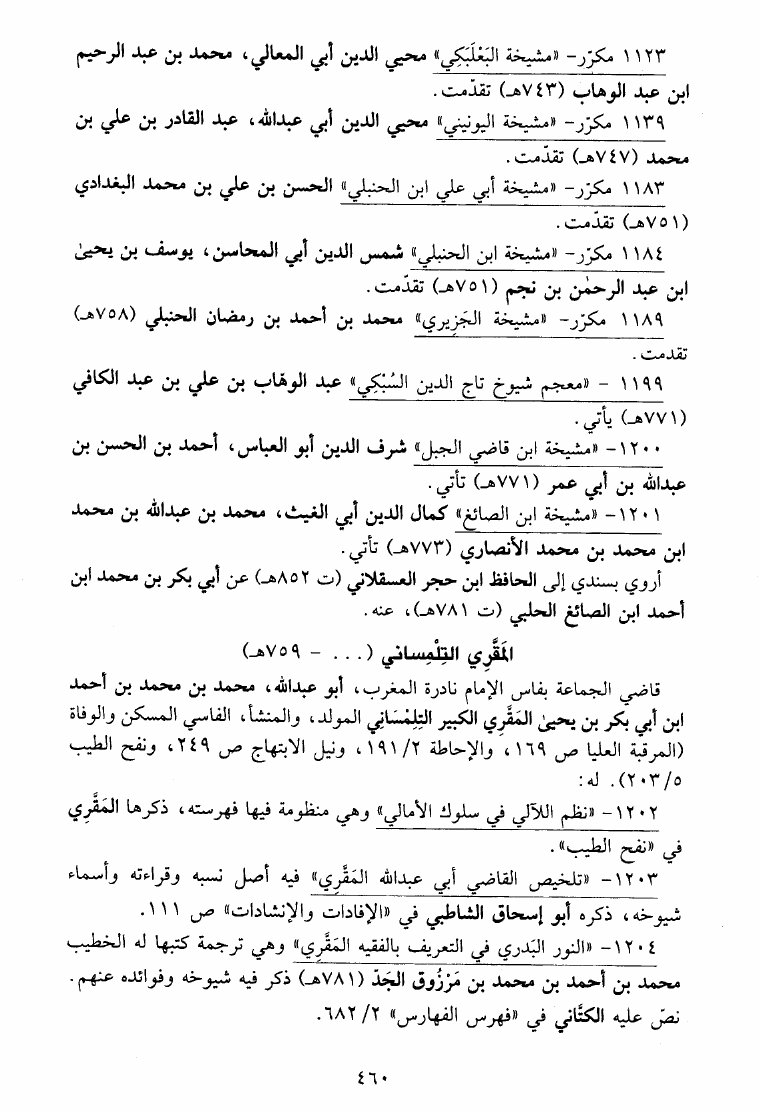 ١١٢٣ مكرّر- «مشيخة البَعْلَبَكِي» محيي الدين أبي المعالي، محمد بن عبد الرحيم
ابن عبد الوهاب (٧٤٣هـ) تقدّمت.
١١٣٩ مكرّر- «مشيخة اليونيني» محيي الدين أبي عبدالله، عبد القادر بن علي بن
محمد (٧٤٧هـ) تقدّمت.
١١٨٣ مكرّر- «مشيخة أبي علي ابن الحنبلي» الحسن بن علي بن محمد البغدادي
(٧٥١هـ) تقدّمت.
١١٨٤ مكرّر- «مشيخة ابن الحنبلي» شمس الدين أبي المحاسن، يوسف بن يحيىٰ
ابن عبد الرحمٰن بن نجم (٧٥١هـ) تقدّمت.
١١٨٩ مكرّر- «مشيخة الجَزيري» محمد بن أحمد بن رمضان الحنبلي (٧٥٨هـ)
تقدمت.
١١٩٩ - «معجم شيوخ تاج الدين السُّبْكِي» عبد الوهّاب بن علي بن عبد الكافي
(٧٧١هـ) يأتي.
١٢٠٠- «مشيخة ابن قاضي الجبل» شرف الدين أبو العباس، أحمد بن الحسن بن
عبدالله بن أبي عمر (٧٧١هـ) تأتي.
١٢٠١- «مشيخة ابن الصائغ» كمال الدين أبي الغيث، محمد بن عبدالله بن محمد
ابن محمد بن محمد الأنصاري (٧٧٣هـ) تأتي.
أروي بسندي إلى الحافظ ابن حجر العسقلاني (ت ٨٥٢هـ) عن أبي بكر بن محمد ابن
أحمد ابن الصائغ الحلبي (ت ٧٨١هـ)، عنه.
المَقَّرِي التِلْمِساني (... - ٧٥٩هـ)
قاضي الجماعة بفاس الإمام نادرة المغرب، أبو عبدالله، محمد بن محمد بن أحمد
ابن أبي بكر بن يحيىٰ المَقَّري الكبير التِلِمْسَاني المولد، والمنشأ، الفاسي المسكن والوفاة
(المرقبة العليا ص ١٦٩، والإحاطة ١٩١/٢، ونيل الابتهاج ص ٢٤٩، ونفح الطيب
٢٠٣/٥). له:
١٢٠٢- «نظم اللآلي في سلوك الأمالي» وهي منظومة فيها فهرسته، ذكرها المَقَّري
في «نفح الطيب».
١٢٠٣- «تلخيص القاضي أبي عبدالله المَقَّرِي» فيه أصل نسبه وقراءته وأسماء
شيوخه، ذكره أبو إسحاق الشاطبي في «الإفادات والإنشادات» ص ١١١.
١٢٠٤- «النور البَدري في التعريف بالفقيه المَقَّري» وهي ترجمة كتبها له الخطيب
محمد بن أحمد بن محمد بن مَرْزُوق الجَدّ (٧٨١هـ) ذكر فيه شيوخه وفوائده عنهم.
نصّ عليه الكتَّاني في «فهرس الفهارس» ٦٨٢/٢.
٤٦٠